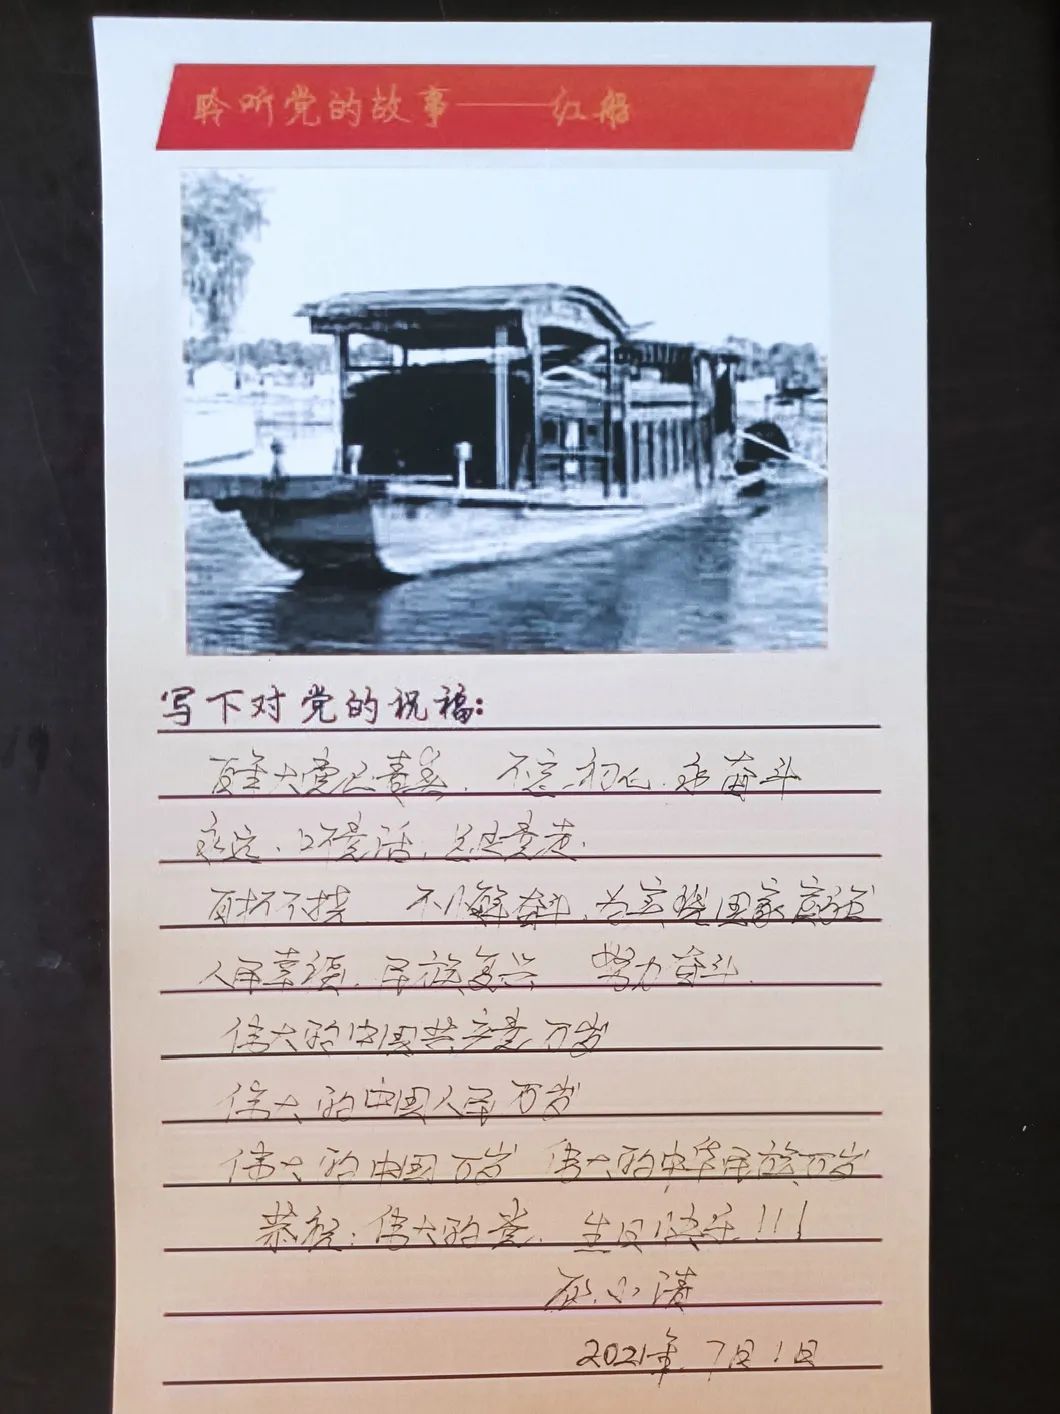 聆听党的故事——红船
写下对党的祝福:
百年大党正青春、不忘初心、永奋斗
永远、听党话,跟党走.
百折不挠 不懈奋斗、为实现国家富强
人民幸福、民族复兴 努力奋斗.
伟大的中国共产党万岁
伟大的中国人民万岁
伟大的中国万岁 伟大的中华民族万岁
恭祝:伟大的党、生日快乐!!!
小清
2021年7月1日